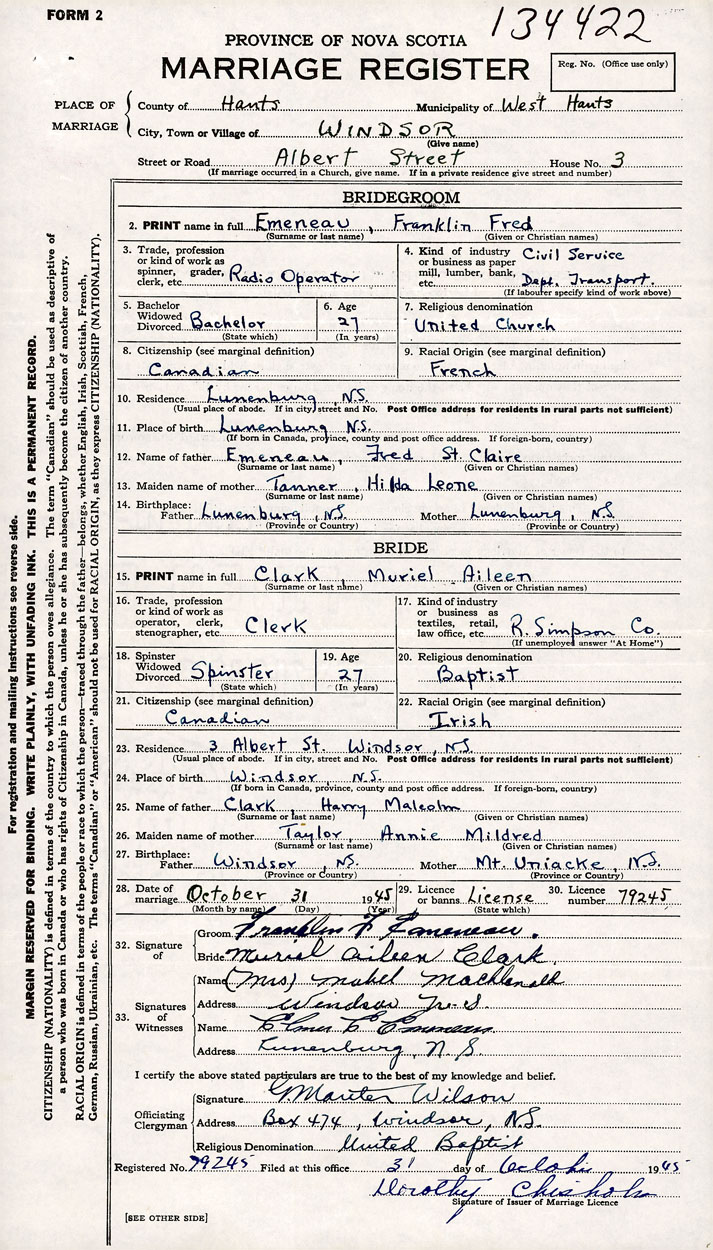 FORM 2
134422
PROVINCE OF NOVA SCOTIA
MARRIAGE REGISTER
Reg. No. (Office use only)
PLACE OF MARRIAGE
County of Hants Municipality of West Hants
City, Town or Village of WINDSOR
(Give name)
Street or Road Albert Street House No. 3
(If marriage occurred in a Church, give name. If in a private residence give street and number)
BRIDEGROOM
2. PRINT name in full Emeneau, Franklin Fred
(Surname or last name) (Given or Christian names)
3. Trade, profession or kind of work as spinner, grader, clerk, etc. Radio Operator
4. Kind of industry or business as paper mill, lumber, bank, etc. Civil Service Dept. Transport.
(If labourer specify kind of work above)
5. Bachelor Widowed Divorced Bachelor
(State which)
6. Age 27
(In years)
7. Religious denomination
United Church
8. Citizenship (see marginal definition)
Canadian
9. Racial Origin (see marginal definition)
French
10. Residence Lunenburg, N.S.
(Usual place of abode. If in city, street and No. Post Office address for residents in rural parts not sufficient)
11. Place of birth Lunenburg N.S.
(If born in Canada, province, county and post office address. If foreign-born, country)
12. Name of father Emeneau, Fred St. Claire
(Surname or last name) (Given or Christian names)
13. Maiden name of mother Tanner, Hilda Leone
(Surname or last name) (Given or Christian names)
14. Birthplace: Father Lunenburg, N.S. Mother Lunenburg, N.S.
(Province or Country) (Province or Country)
BRIDE
15. PRINT name in full Clark, Muriel Aileen
(Surname or last name) (Given or Christian names)
16. Trade, profession or kind of work as operator, clerk, stenographer, etc. Clerk
17. Kind of industry or business as textiles, retail, law office, etc. R. Simpson Co.
(If unemployed answer "At Home")
18. Spinster Widowed Divorced Spinster
(State which)
19. Age 27
(In years)
20. Religious denomination
Baptist
21. Citizenship (see marginal definition)
Canadian
22. Racial Origin (see marginal definition)
Irish
23. Residence 3 Albert St. Windsor, N.S.
(Usual place of abode. If in city, street and No. Post Office address for residents in rural parts not sufficient)
24. Place of birth Windsor, N.S.
(If born in Canada, province, county and post office address. If foreign-born, country)
25. Name of father Clark, Harry Malcolm
(Surname or last name) (Given or Christian names)
26. Maiden name of mother Taylor, Annie Mildred
(Surname or last name) (Given or Christian names)
27. Birthplace: Father Windsor, N.S. Mother Mt. Uniacke, N.S.
(Province or Country) (Province or Country)
28. Date of marriage October 31 1945
(Month by name) (Day) (Year)
29. Licence or banns License
(State which)
30. Licence number 79245
32. Signature of
Groom Franklin F Emeneau.
Bride Muriel Aileen Clark.
33. Signatures of Witnesses
Name (Mrs) Mabel
Address Windsor N.S.
Name Elmer C Emeneau
Address Lunenburg, N.S.
I certify the above stated particulars are true to the best of my knowledge and belief.
Officiating Clergyman
Signature G Manter Wilson
Address Box 474, Windsor, N.S.
Religious Denomination United Baptist
Registered No. 79245 Filed at this office 31 day of October 1945
Dorothy Chisholm
Signature of Issuer of Marriage Licence
[SEE OTHER SIDE]
For registration and mailing instructions see reverse side.
MARGIN RESERVED FOR BINDING. WRITE PLAINLY, WITH UNFADING INK. THIS IS A PERMANENT RECORD.
CITIZENSHIP (NATIONALITY) is defined in terms of the country to which the person owes allegiance. The term "Canadian" should be used as descriptive of
a person who was born in Canada or who has rights of Citizenship in Canada, unless he or she has subsequently become the citizen of another country.
RACIAL ORIGIN is defined in terms of the people or race to which the person—traced through the father—belongs, whether English, Irish, Scottish, French,
German, Russian, Ukrainian, etc. The terms "Canadian" or "American" should not be used for RACIAL ORIGIN, as they express CITIZENSHIP (NATIONALITY).